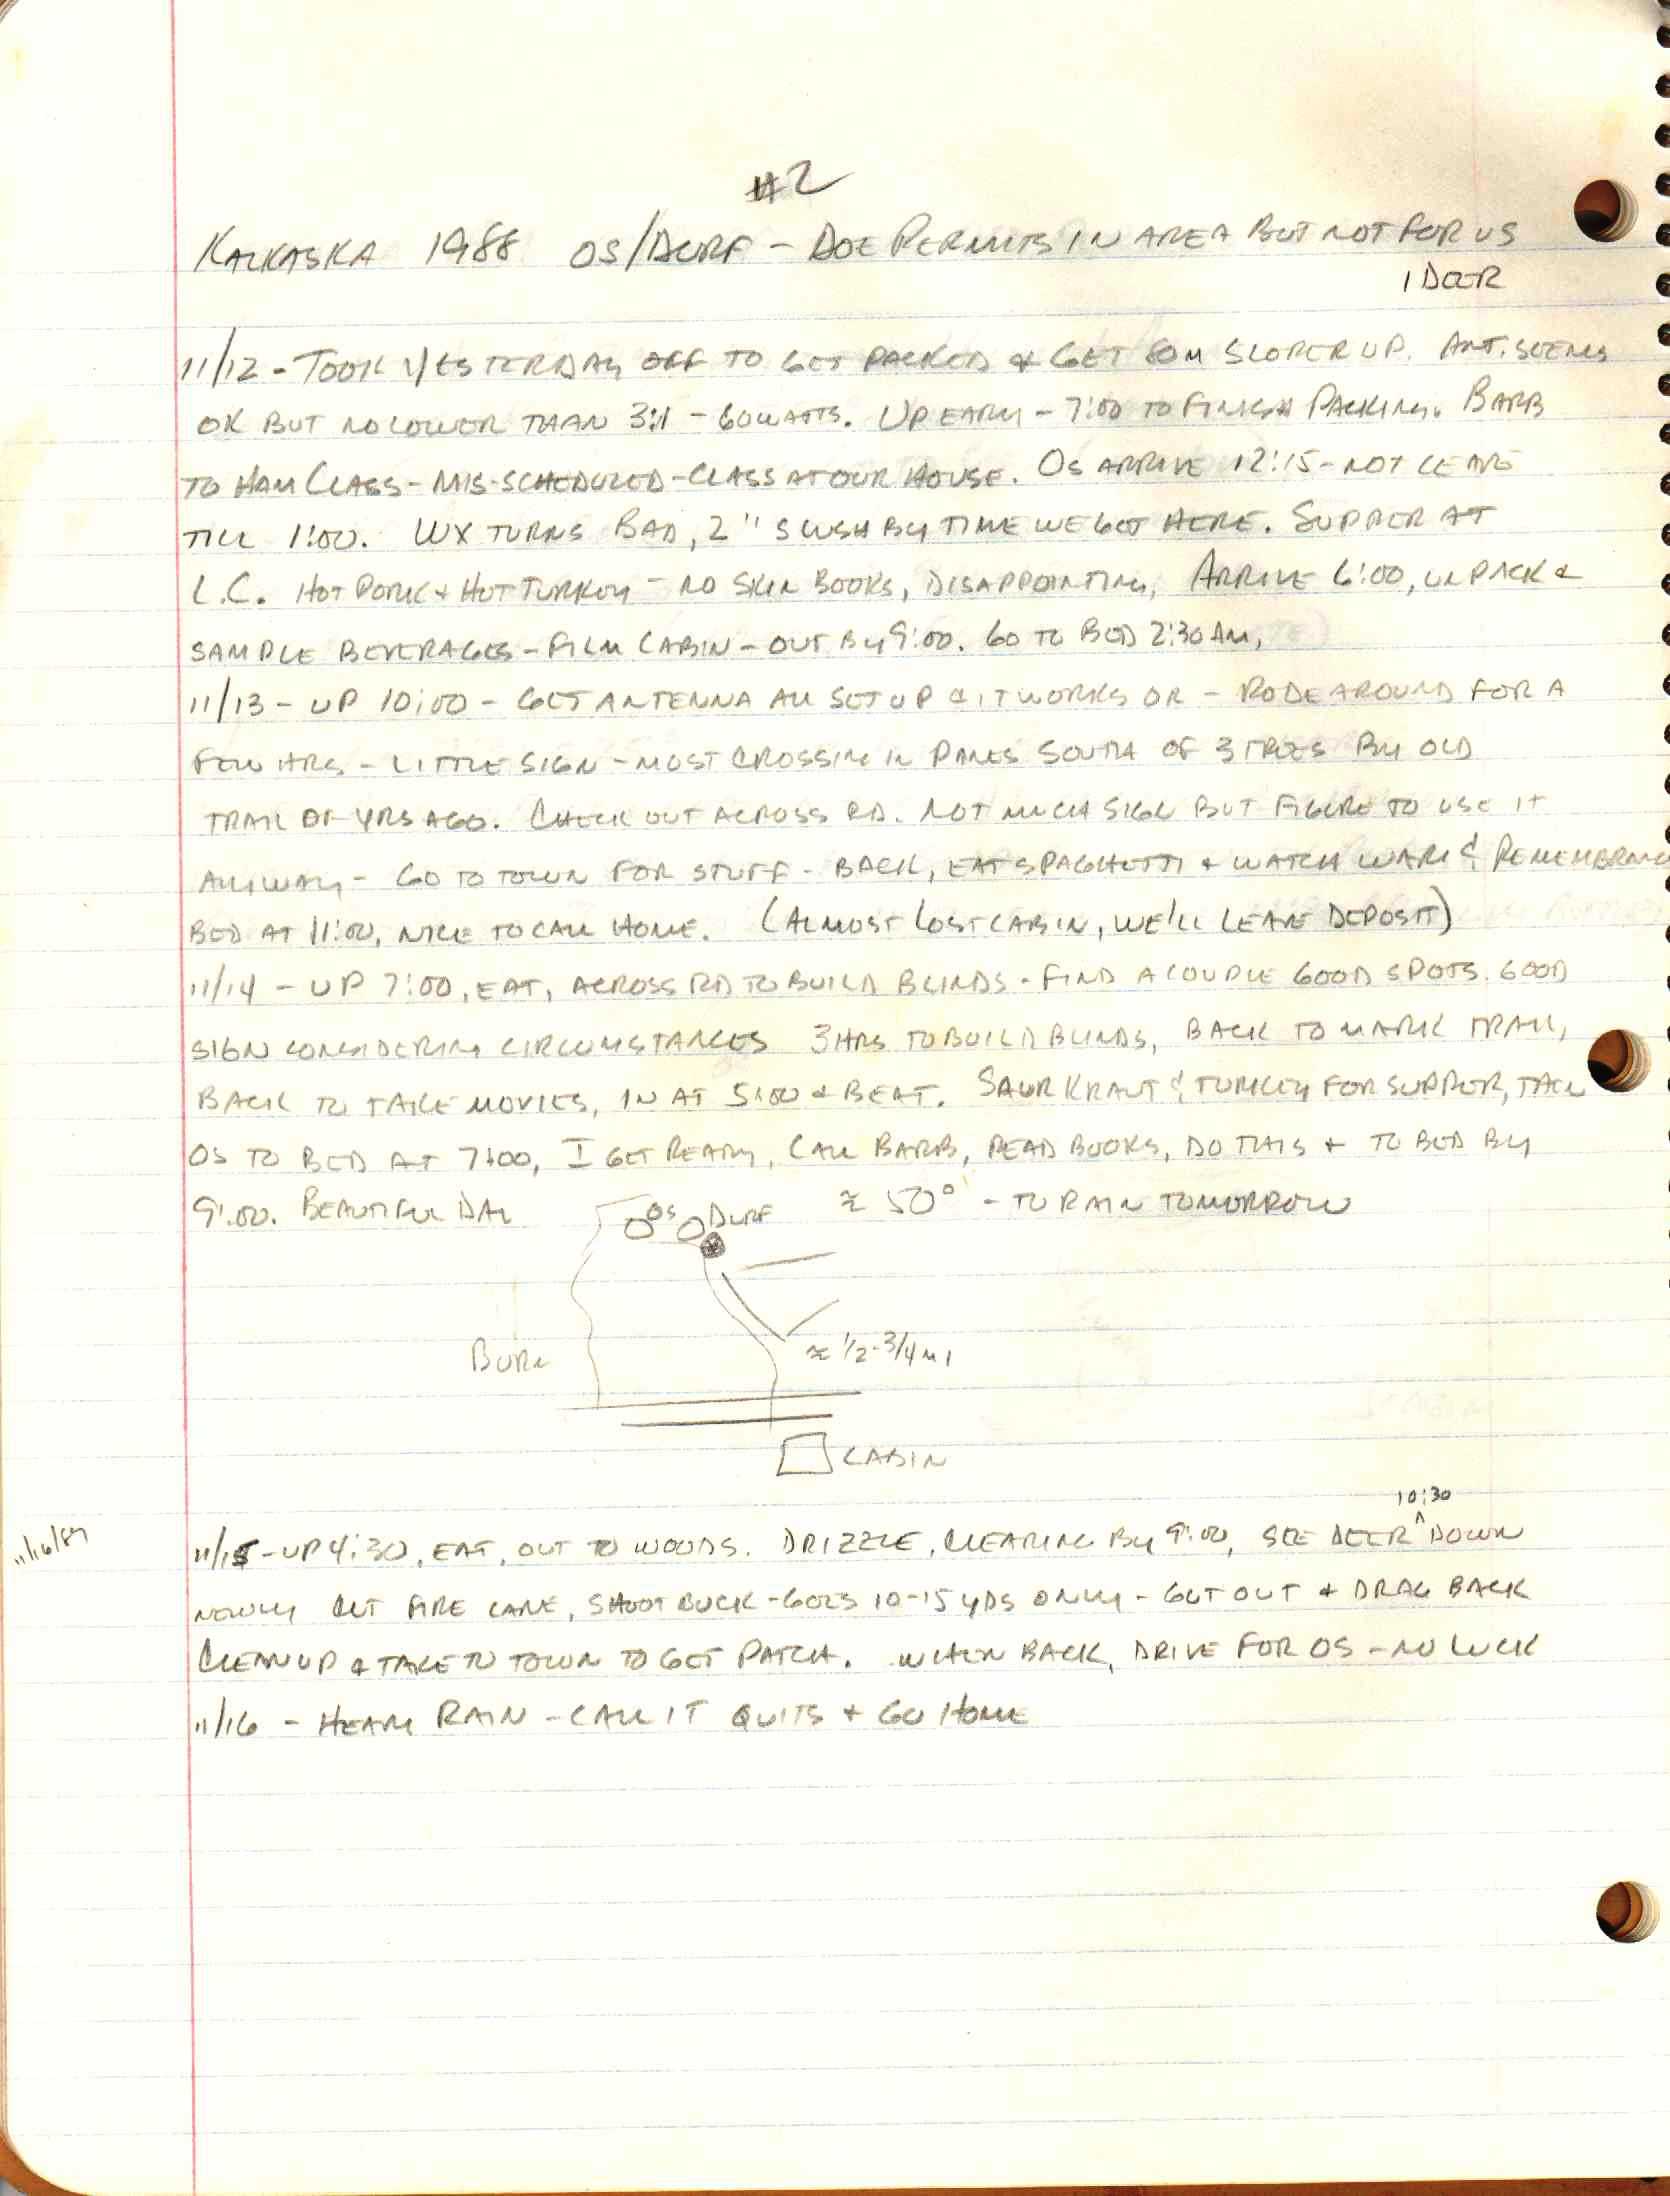 #2
KALKASKA 1988 OS/DURF - DOE PERMITS IN AREA BUT NOT FOR US
1 DEER
11/12 - TOOK YESTERDAY OFF TO GET PACKED & GET 80M SLOPER UP. ANT. SEEMS
OK BUT NO LOWER THAN 3:1 - 60 WATTS. UP EARLY - 7:00 TO FINISH PACKING. BARB
TO HAM CLASS - MIS-SCHEDULED - CLASS AT OUR HOUSE. OS ARRIVE 12:15 - NOT LEAVE
TILL 1:00. WX TURNS BAD, 2" SLUSH BY TIME WE GET HERE. SUPPER AT
L.C. HOT PORK & HOT TURKEY - NO SKIN BOOKS, DISAPPOINTING, ARRIVE 6:00, UNPACK &
SAMPLE BEVERAGES - FILM CABIN - OUT BY 9:00. GO TO BED 2:30 AM,
11/13 - UP 10:00 - GET ANTENNA ALL SET UP & IT WORKS OK - RODE AROUND FOR A
FEW HRS - LITTLE SIGN - MOST CROSSING IN PINES SOUTH OF 3 TREES BY OLD
TRAIL OF YRS AGO. CHECK OUT ACROSS RD. NOT MUCH SIGN BUT FIGURE TO USE IT
ANYWAY - GO TO TOWN FOR STUFF - BACK, EAT SPAGHETTI & WATCH WAR & REMEMBRANCE
BED AT 11:00, NICE TO CALL HOME. (ALMOST LOST CABIN, WE'LL LEAVE DEPOSIT)
11/14 - UP 7:00, EAT, ACROSS RD TO BUILD BLINDS - FIND A COUPLE GOOD SPOTS. GOOD
SIGN CONSIDERING CIRCUMSTANCES 3 HRS TO BUILD BLINDS, BACK TO MARK TRAIL,
BACK TO TAKE MOVIES, IN AT 5:00 & BEAT. SAURKRAUT & TURKEY FOR SUPPER, THEN
OS TO BED AT 7:00, I GET READY, CALL BARB, READ BOOKS, DO THIS & TO BED BY
9:00. BEAUTIFUL DAY ≈ 50° - TO RAIN TOMORROW
OS DURF
BURN
≈ 1/2-3/4 MI
CABIN
10:30
11/16/89
11/15 - UP 4:30, EAT, OUT TO WOODS. DRIZZLE, CLEARING BY 9:00, SEE DEER ^ DOWN
NEWLY CUT FIRE LANE, SHOOT BUCK - GOES 10-15 YDS ONLY - GUT OUT & DRAG BACK
CLEAN UP & TAKE TO TOWN TO GET PATCH. WHEN BACK, DRIVE FOR OS - NO LUCK
11/16 - HEAVY RAIN - CALL IT QUITS & GO HOME